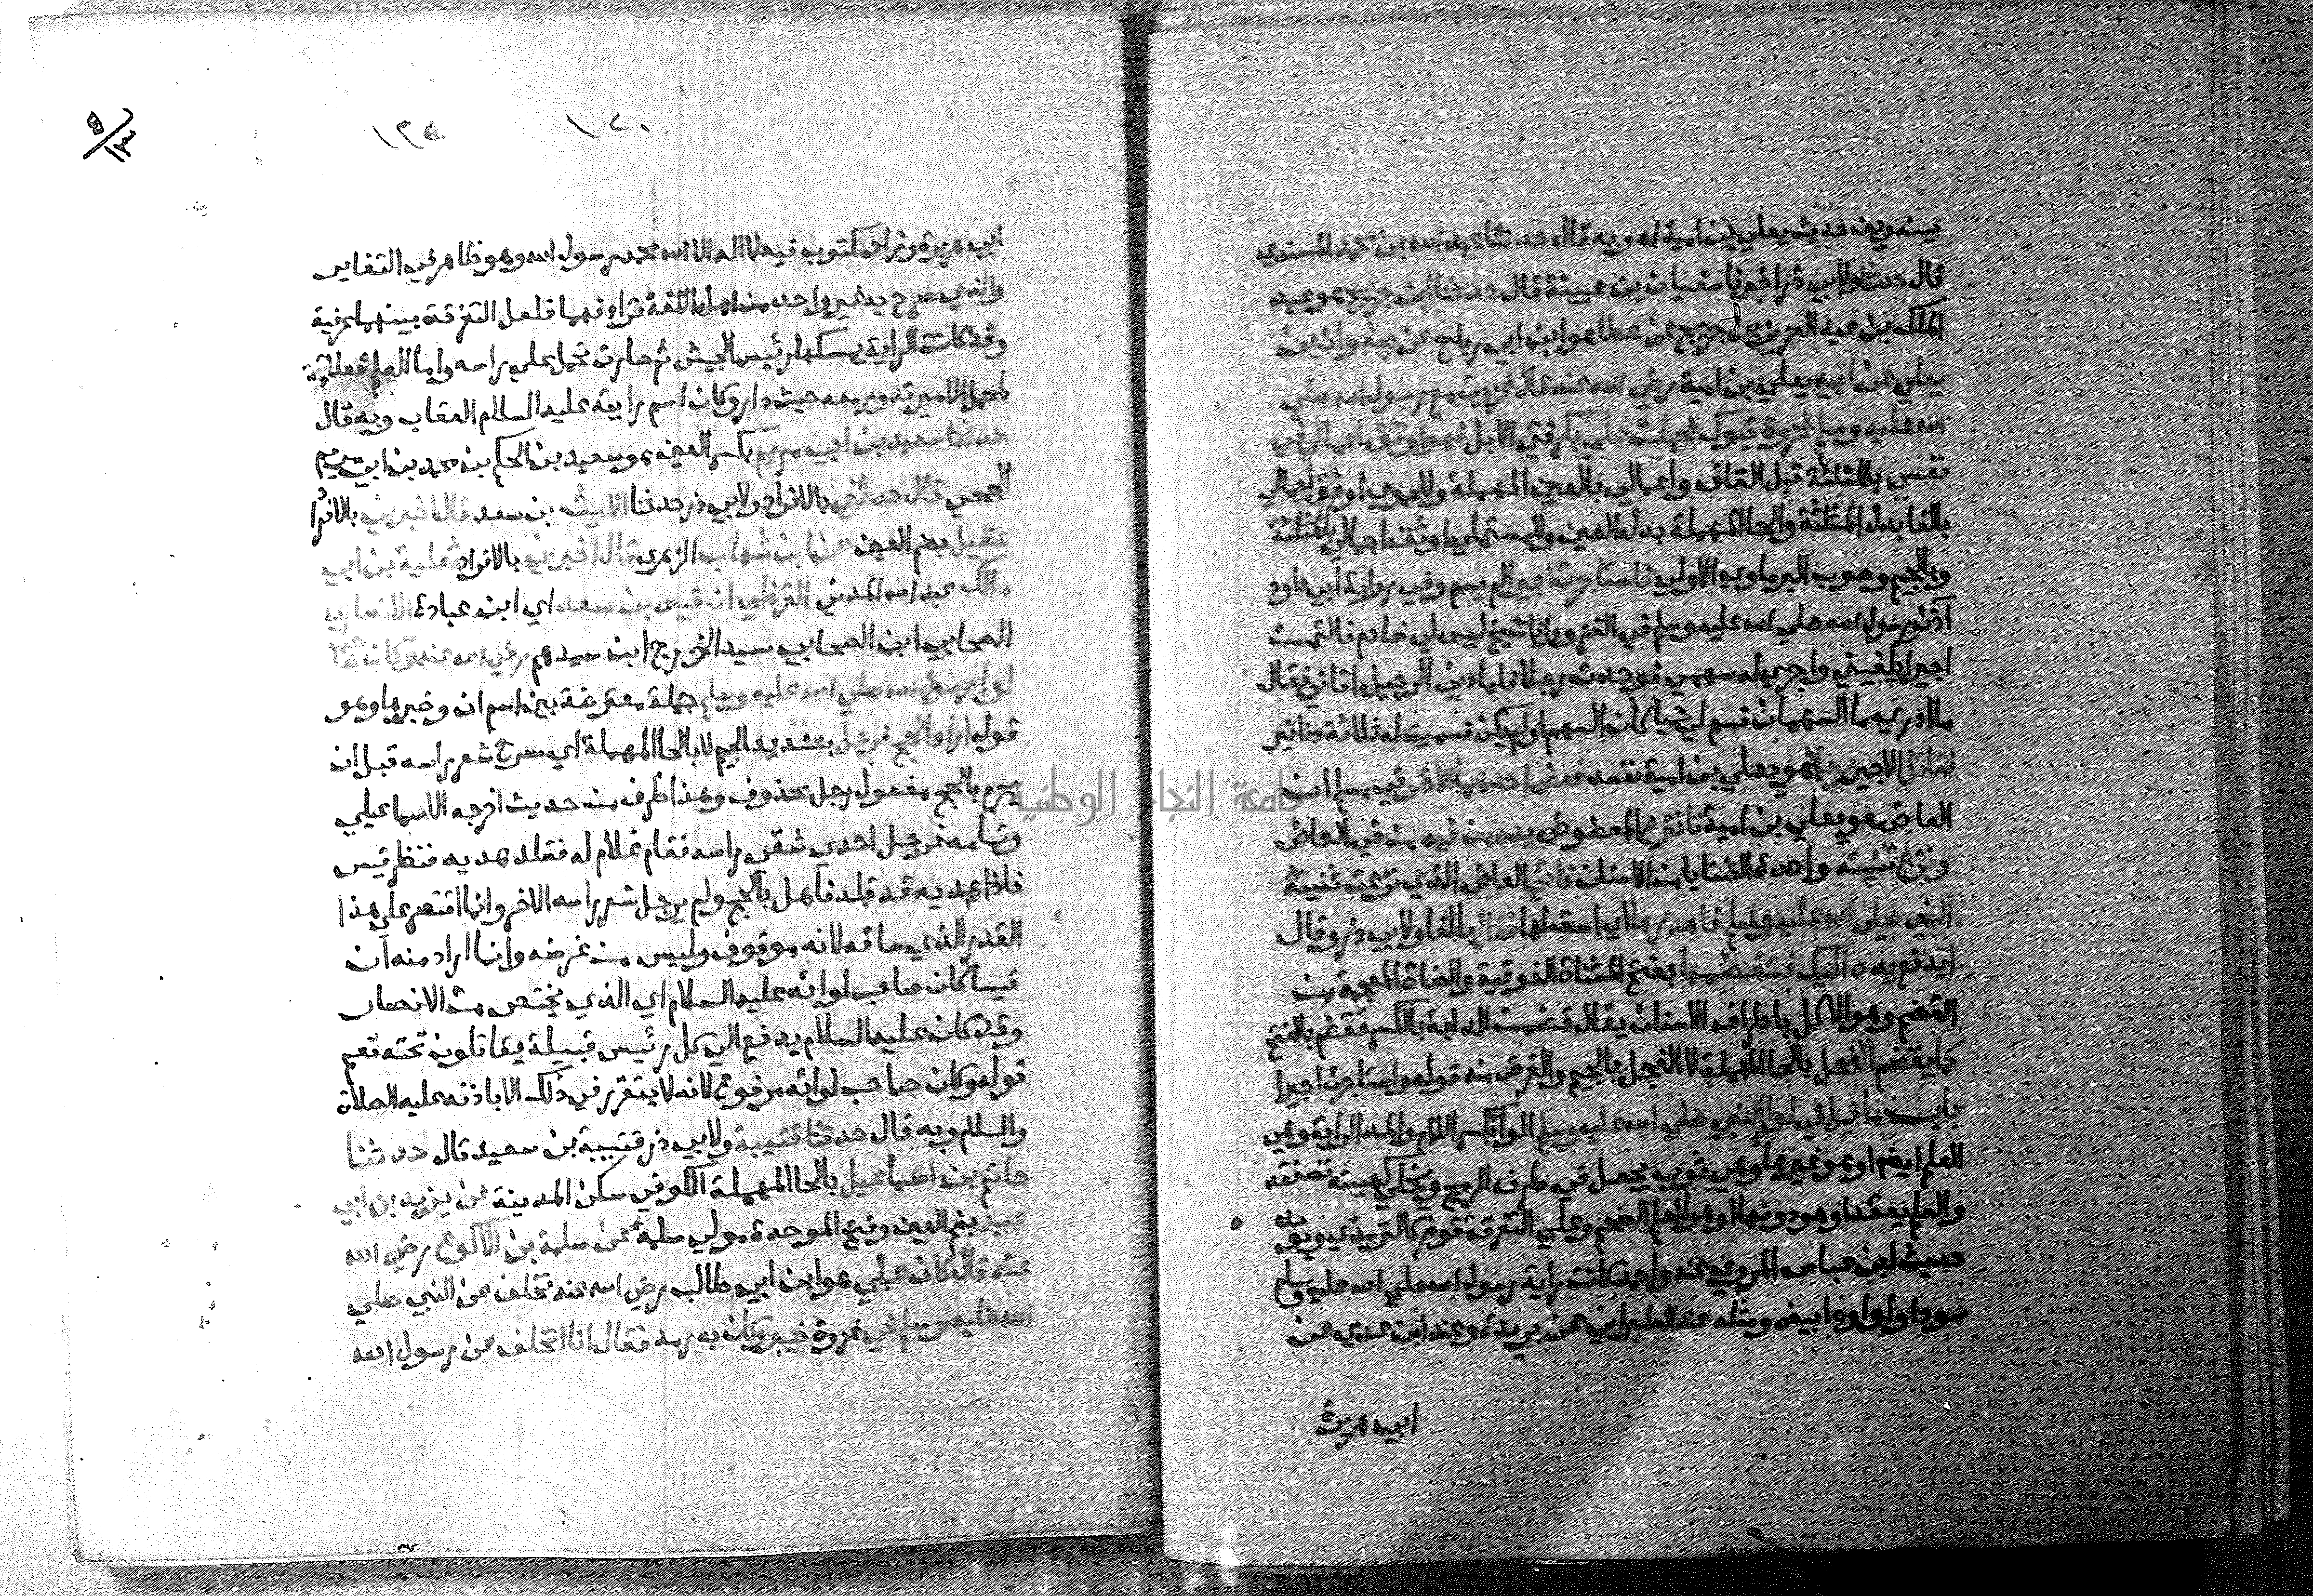 بينه وبين حديث يعلي بن امية اه وبه قال حدثنا عبد الله بن محمد المسندي
قال حدثنا ولابي ذر اخبرنا سفيان بن عيينة قال حدثنا ابن جريج هو عبد
الملك بن عبد العزيز بن جريج عن عطا هو ابن ابي رباح عن صفوان بن
يعلي عن ابيه يعلي بن امية رضي الله عنه قال غزوت مع رسول الله صلي
الله عليه وسلم غزوة تبوك فحملت علي بكر فتي الابل فهو اوثق اعمالي في
نفسي بالمثلثة قبل القاف واعمالي بالعين المهملة وللحموي اوفق احمالي
بالفا بدل المثلثة والحا المهملة بدل العين وللمستملي اوثق اجمالي بالمثلثة
وبالجيم وصوب البرماوي الاولي فاستاجرت اجيرا لم يسم وفي رواية ابي داود
آذن رسول الله صلي الله عليه وسلم في الغزو وانا شيخ ليس لي خادم فالتمست
اجيرا يكفيني واجري له سهمي فوجدت رجلا فلما دنى الرحيل اتاني فقال
ما ادري ما السهمان فسم لي شيا كان السهم او لم يكن فسميت له ثلاثة دنانير
فقاتل الاجير رجلا هو يعلي بن امية نفسه فعض احدهما الاخر في مسلم ان
العاض هو يعلي بن امية فانتزع المعضوض يده من فيه من في العاض
ونزع ثنيته واحدة الثنايا من الاسنان فاتي العاض الذي نزعت ثنيته
النبي صلي الله عليه وسلم فاهدرها اي اسقطها فقال بالفا ولابي ذر وقال
ايدفع يده اليك فتقضمها بفتح المثناة الفوقية والضاد المعجمة من
القضم وهو الاكل باطراف الاسنان يقال قضمت الدابة بالكسر تقضم بالفتح
كما يقضم الفحل بالحا المهملة لا الفجل بالجيم والغرض منه قوله واستاجرت اجيرا
باب ما قيل في لوا النبي صلي الله عليه وسلم اللوا بكسر اللام والمد الراية وهي
العلم ايضا او هو غيرها وهي ثوب يجعل في طرف الرمح ويخلي كهيئته تصفقه
والعلم يعقد او هو دونها او هو العلم الضخم وعلي التفرقة قوم كالترمذي
حديث ابن عباس المروي عند واحمد كانت راية رسول الله صلي الله عليه وسلم
سودا ولواوه ابيض ومثله عند الطبراني عن بريدة وعند ابن عدي عن
ابي هريرة
١٢٥
١٢٠
٥/١٣
ابي هريرة وزاد مكتوب فيه لا اله الا الله محمد رسول الله وهو ظاهر في التغاير
والذي صرح به غير واحد من اهل اللغة ترادفهما فلعل التفرقة بينهما عرفية
وقد كانت الراية يمسكها رئيس الجيش ثم صارت تحمل علي راسه واما العلم فعلامة
لمحل الامير تدور معه حيث دار وكان اسم رايته عليه السلام العقاب وبه قال
حدثنا سعيد بن ابي مريم بكسر العين هو سعيد بن الحكم بن محمد بن ابي مريم
الجمحي قال حدثني بالافراد ولابي ذر حدثنا الليث بن سعد قال اخبرني بالافراد
عقيل بضم العين عن ابن شهاب الزهري قال اخبرني بالافراد ثعلبة بن ابي
مالك عبد الله المدني القرظي ان قيس بن سعد اي ابن عبادة الانصاري
الصحابي ابن الصحابي سيد الخزرج ابن سيدهم رضي الله عنه وكان صاحب
لوا رسول الله صلي الله عليه وسلم جملة معترضة بين اسم ان وخبرها وهو
قوله اراد الحج فرجل بتشديد الجيم لا بالحا المهملة اي سرح شعر راسه قبل ان
يحرم بالحج مفعول رجل محذوف وهذا طرف من حديث اخرجه الاسماعيلي
وتمامه فرجل احدي شقي راسه فقام غلام له فقلد هديه فنظر قيس
فاذا هديه قد قلد فاهل بالحج ولم يرجل شق راسه الاخر وانما اقتصر علي هذا
القدر الذي ساقه لانه موقوف وليس من غرضه وانما اراد منه ان
قيسا كان صاحب لوائه عليه السلام اي الذي يختص من الانصار
وقد كان عليه السلام يدفع الي كل رئيس قبيلة يقاتلون تحته نعم
قوله وكان صاحب لوائه مرفوع لانه لا يتقرر في ذلك الا باذنه عليه الصلاة
والسلام وبه قال حدثنا قتيبة ولابي ذر قتيبة بن سعيد قال حدثنا
حاتم بن اسماعيل بالحا المهملة الكوفي سكن المدينة عن يزيد بن ابي
عبيد بضم العين وفتح الموحدة مولي سلمة عن سلمة بن الاكوع رضي الله
عنه قال كان علي هو ابن ابي طالب رضي الله عنه تخلف عن النبي صلي
الله عليه وسلم في غزوة خيبر وكان به رمد فقال انا اتخلف عن رسول الله
جامعة النجاح الوطنية